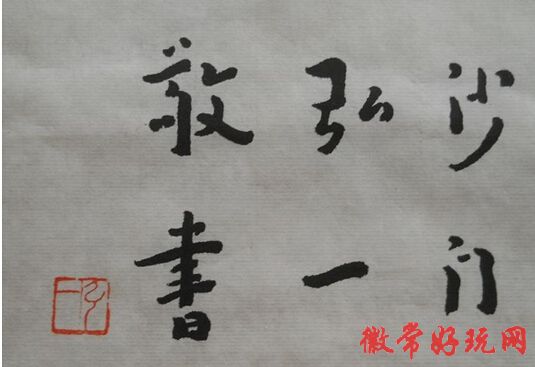 沙门
弘一
敬書
徽常好玩网